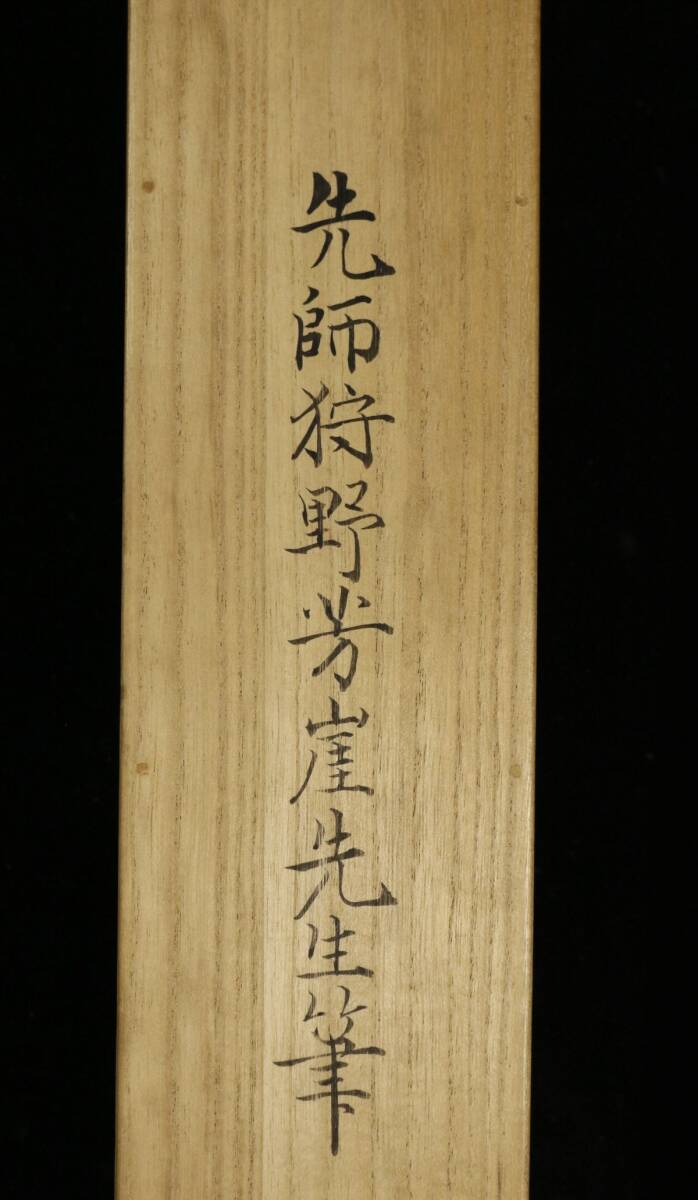 先師狩野芳崖先生筆